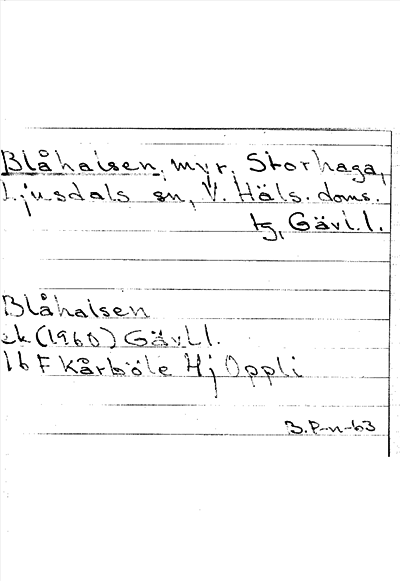 Blåhalsen, myr, Storhaga,
Ljusdals sn, V. Häls. doms.
tg, Gävl.l.
Blåhalsen
ek (1960) Gävl.l.
16 F Kårböle Hj Oppli
B.P-n-63